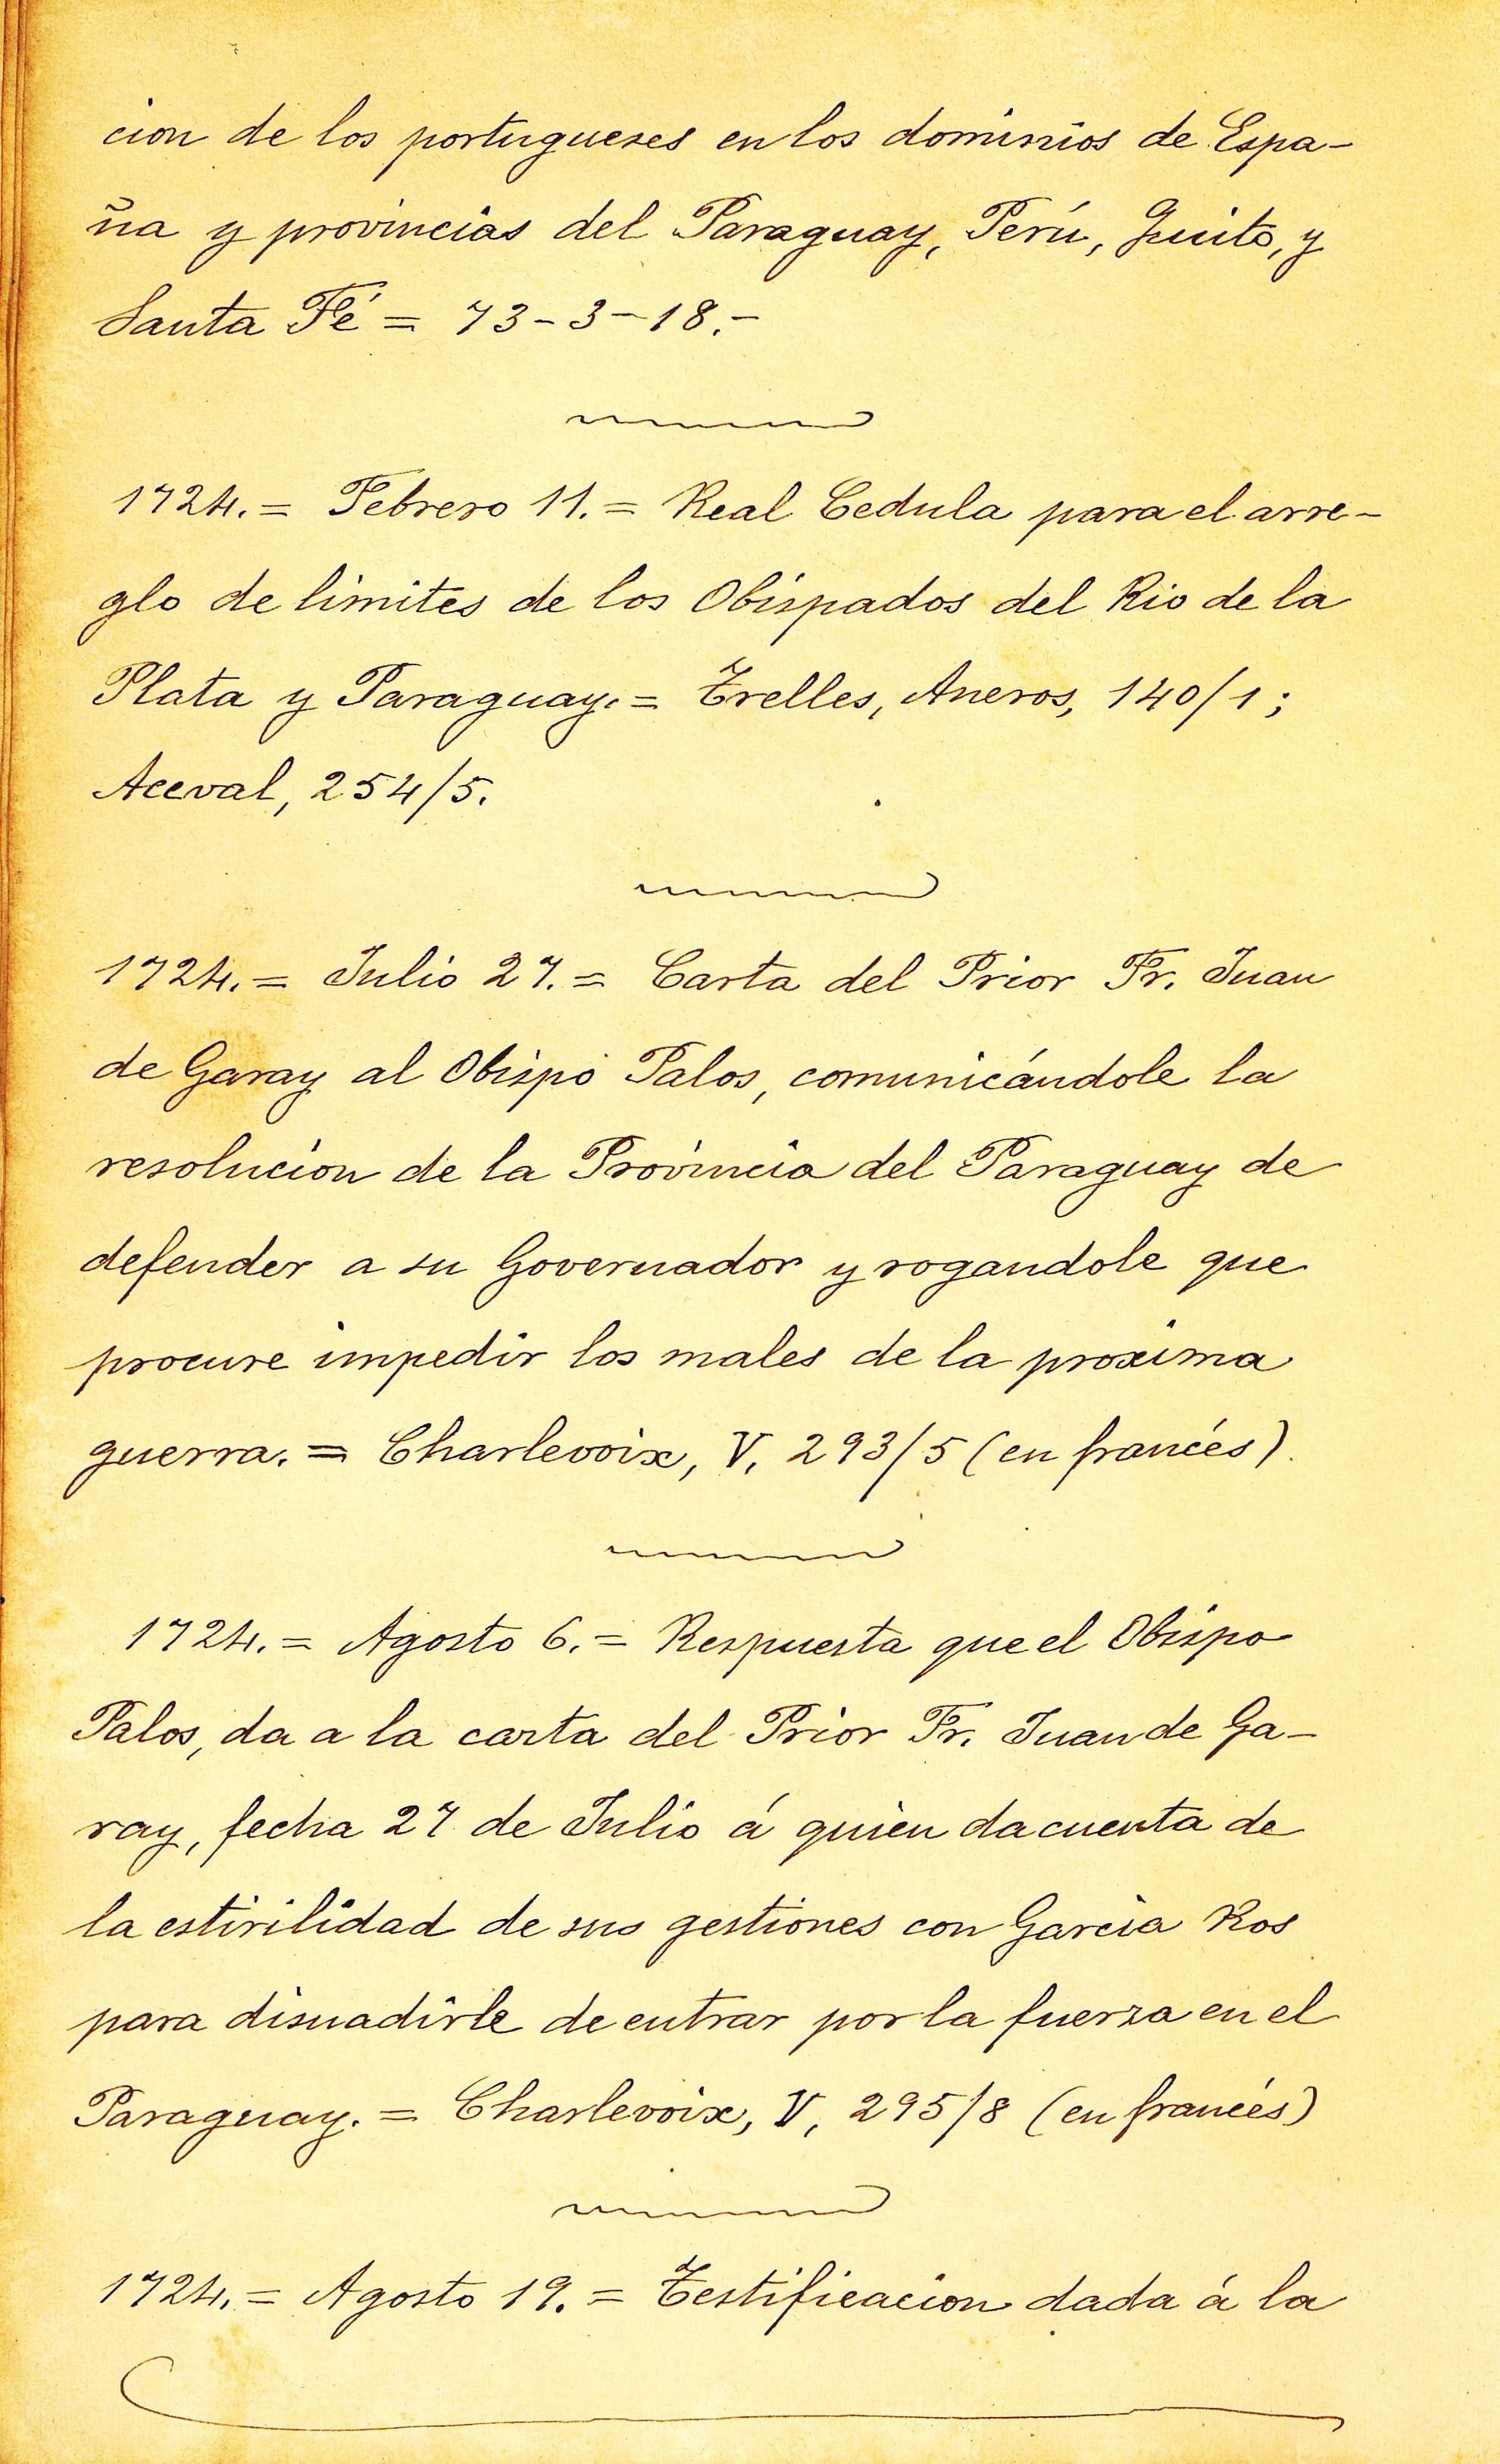 cion de los portugueses en los dominios de Espa-
ña y provincias del Paraguay, Perú, Quito, y
Santa Fé = 73-3-18.-
1724. = Febrero 11. = Real Cedula para el arre-
glo de limites de los Obispados del Rio de la
Plata y Paraguay. = Trelles, Aneros, 140/1;
Aceval, 254/5.
1724. = Julio 27. = Carta del Prior Fr. Juan
de Garay al Obispo Palos, comunicándole la
resolucion de la Provincia del Paraguay de
defender a su Governador y rogandole que
procure impedir los males de la proxima
guerra. = Charlevoix, V, 293/5 (en francés).
1724. = Agosto 6. = Respuesta que el Obispo
Palos, da a la carta del Prior Fr. Juan de Ga-
ray, fecha 27 de Julio á quien da cuenta de
la estirilidad de sus gestiones con Garcia Ros
para disuadirle de entrar por la fuerza en el
Paraguay. = Charlevoix, V, 295/8 (en francés)
1724. = Agosto 19. = Testificacion dada á la